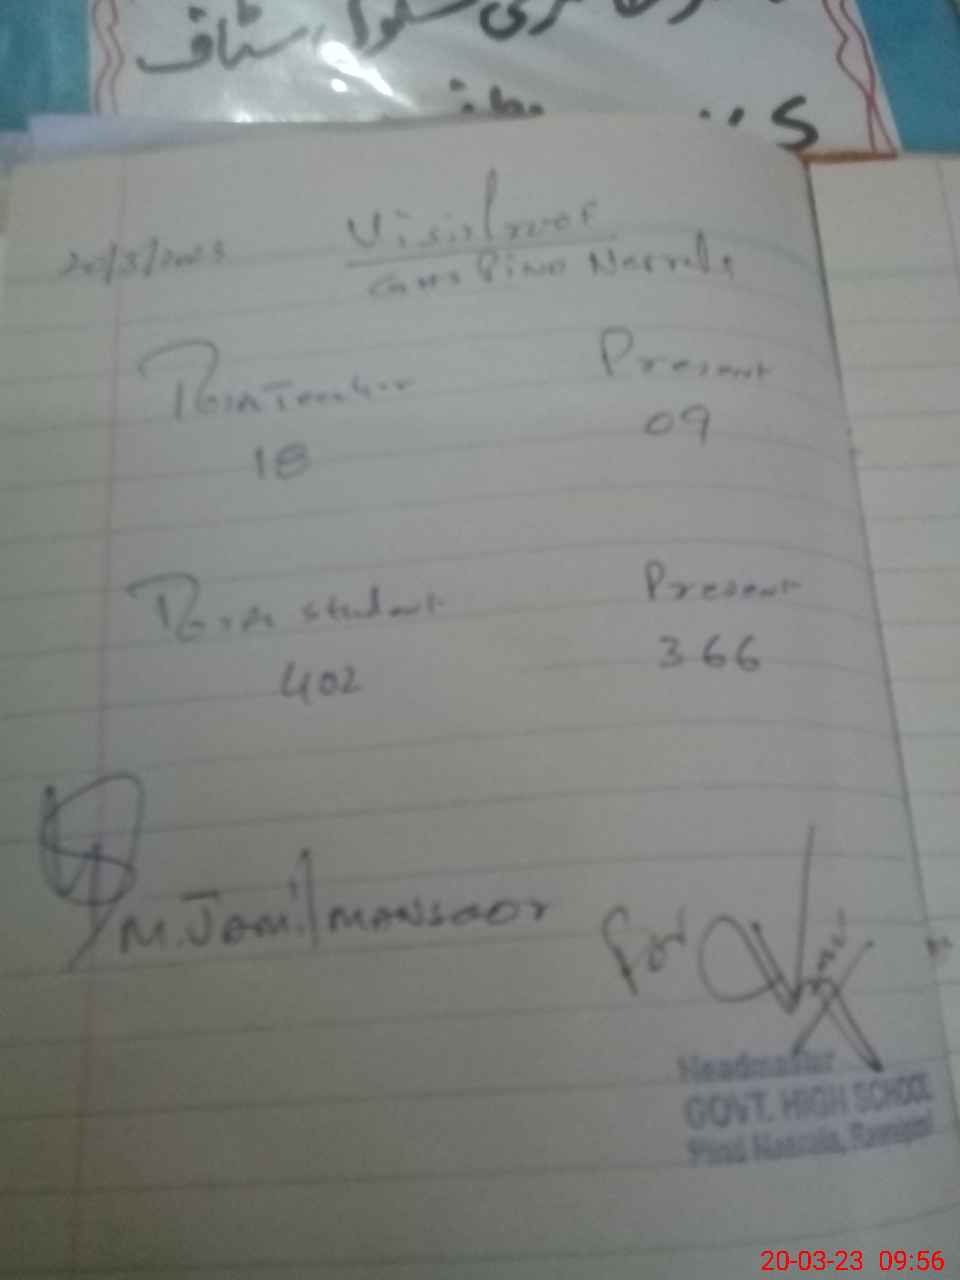 سٹاف
20/3/2023
Visit proof
GHS Pind Nasrala
Total Teacher Present
18 09
Total Student Present
402 366
M. Jamil mansoor
for
Headmaster
GOVT. HIGH SCHOOL
Pind Nasrala, Rawalpindi
20-03-23 09:56